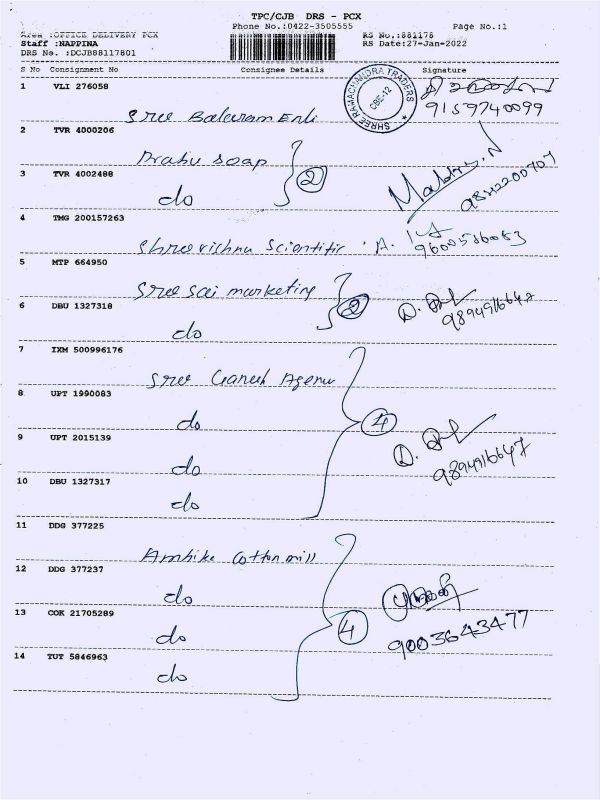 TPC/CJB DRS - PCX
Phone No.:0422-3505555 Page No.:1
Area :OFFICE DELIVERY PCX RS No.:881178
Staff :NAPPINA RS Date:27-Jan-2022
DRS No. :DCJB88117801
S No Consignment No Consignee Details Signature
SHREE RAMACHANDRA TRADERS CBE-12
1 VLI 276058
9159740099
Sree Balaram Enti
2 TVR 4000206
Prabu soap 2
3 TVR 4002488
do
4 TMG 200157263
Shree vishnu Scientific A.
5 MTP 664950
Sree sai marketing
6 DBU 1327318 2 D.
do
7 IXM 500996176
Sree Ganesh Agenci
8 UPT 1990083
do 4
9 UPT 2015139 D.
do 9894916647
10 DBU 1327317
do
11 DDG 377225
Ambike Cotton mill
12 DDG 377237
do
13 COK 21705289
do 4 9003643477
14 TUT 5846963
do